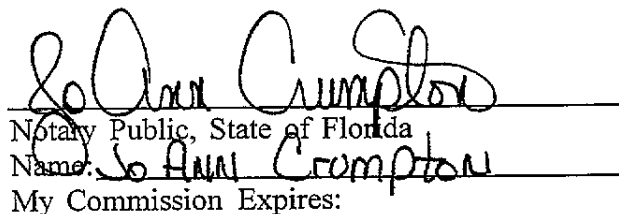 Jo Ann Crumpton
Notary Public, State of Florida
Name: Jo ANN Crompton
My Commission Expires: